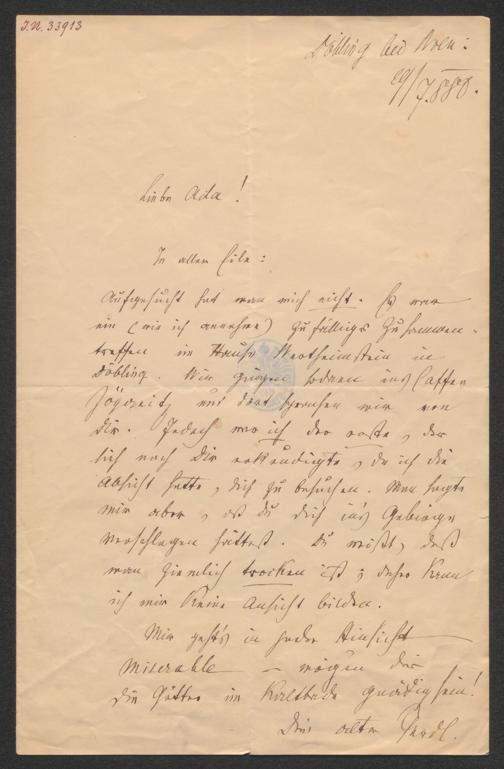 I.N. 33913
Döbling bei Wien:
29/7.888.
Liebe Ada!
In aller Eile:
Aufgesucht hat man mich nicht. Es war
ein (wie ich annehme) zufälliges Zusammen-
treffen im Hause Wertheimstein in
Döbling. Wir gingen sodann ins Caffee
und dort sprachen wir von
Dir. Jedoch war ich der erste, der
sich nach Dir erkundigte, da ich die
Absicht hatte, Dich zu besuchen. Man sagte
mir aber, daß Du Dich in's Gebirge
verschlagen hättest. Du weißt, daß
man ziemlich trocken ist; daher kann
ich mir keine Ansicht bilden.
Mir geht's in jeder Hinsicht
miserable – mögen Dir
die Götter im Kaltbade gnädig sein!
Dein alter Ferdl.